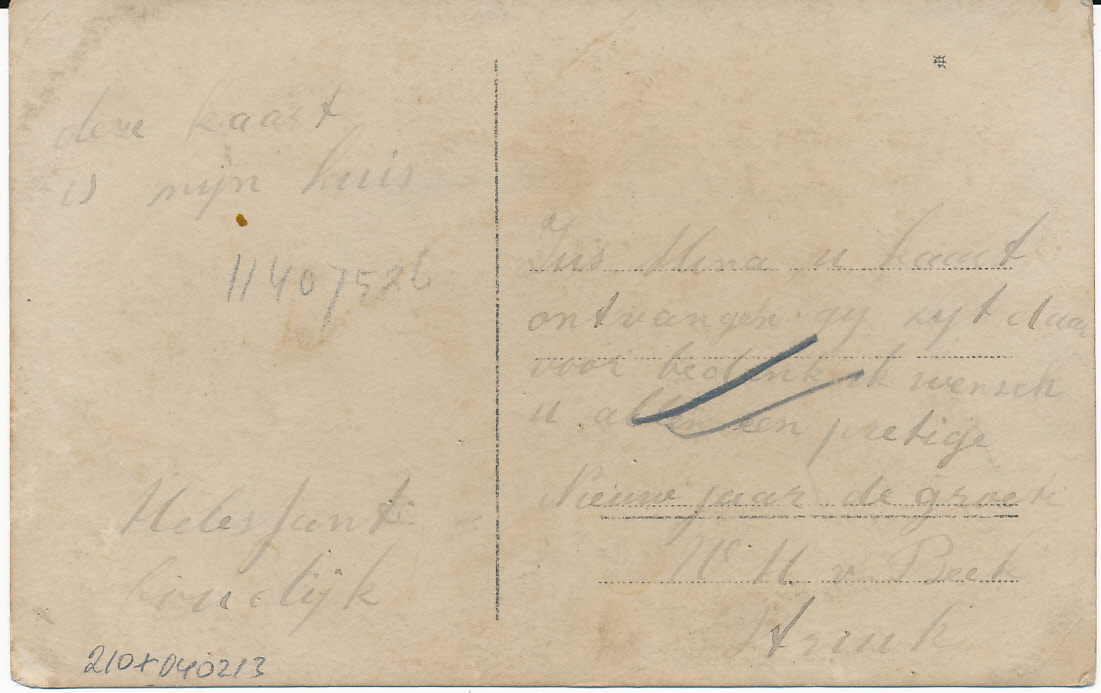 deze kaart
is mijn huis
11407526
Helesfant
210+040213
Jus Mina u kaart
ontvangen gij zijt daar
voor bedenk ik wensch
u allen een pretige
Nieuwe jaar de groete
W H v Beek